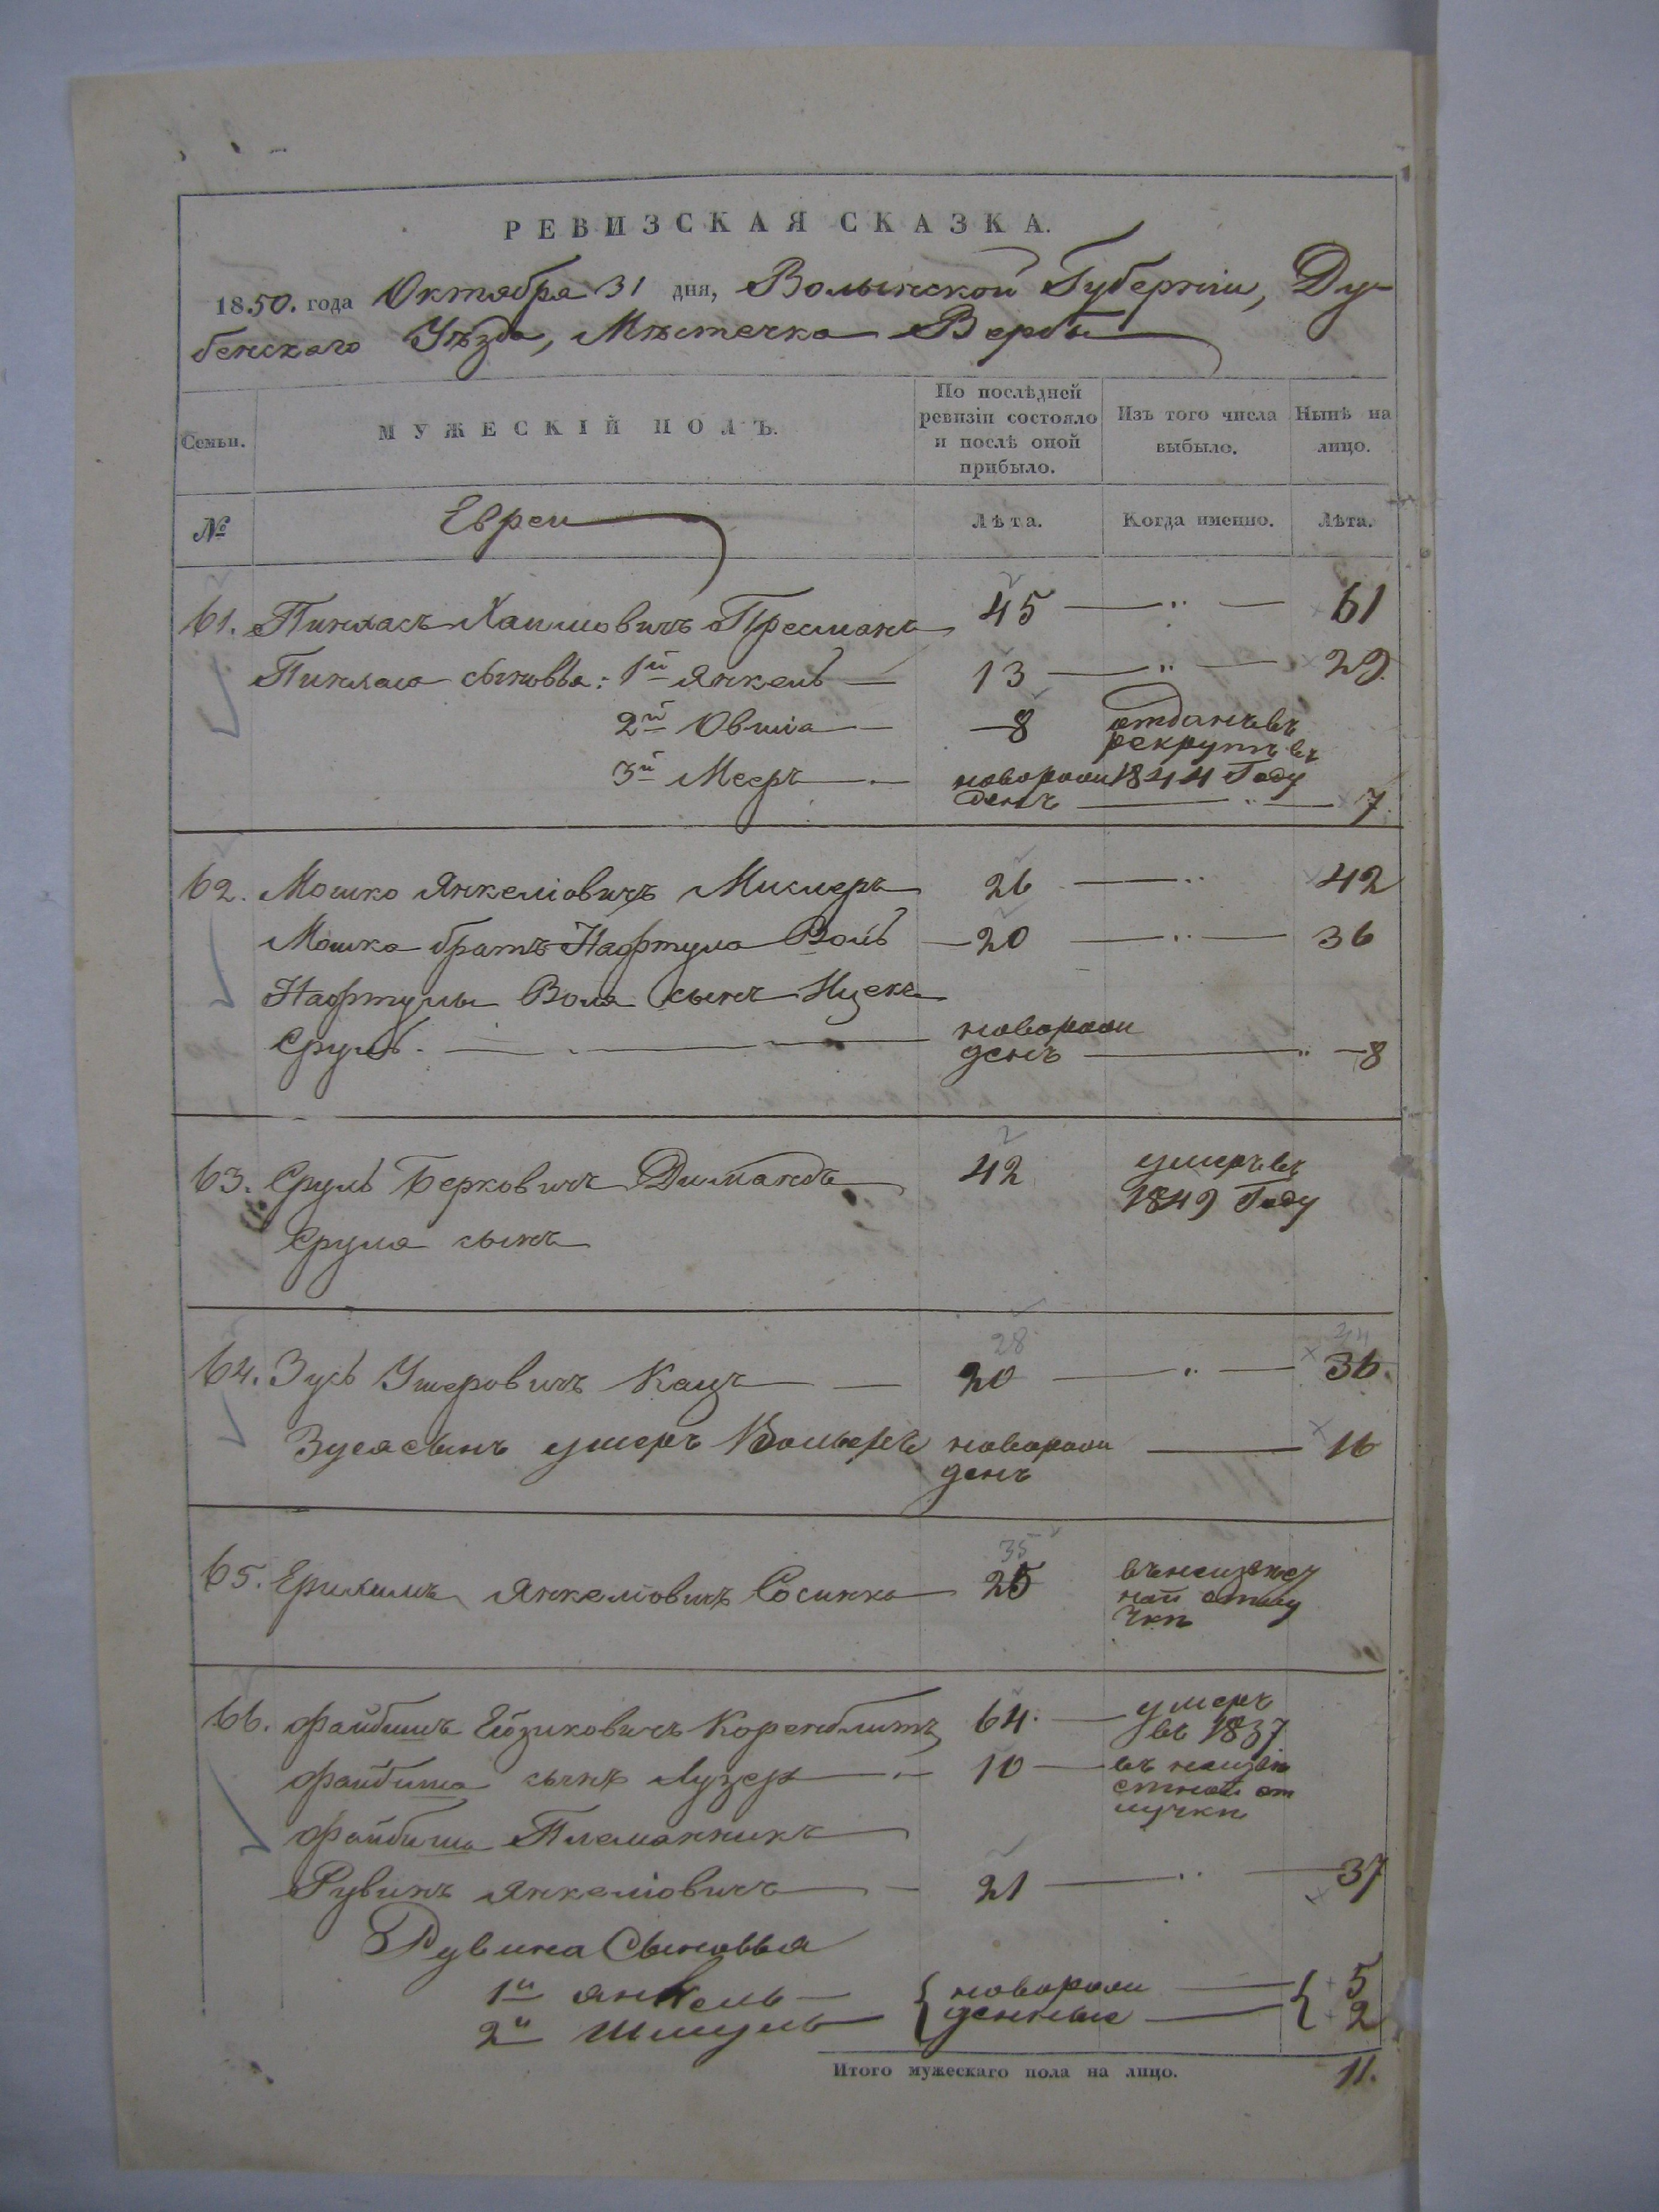 РЕВИЗСКАЯ СКАЗКА.
1850. года Октября 31 дня, Волынской Губернiи, Ду-
бенскаго Уѣзда, Мѣстечка Вербы
Семьи. МУЖЕСКIЙ ПОЛЪ. По послѣдней ревизiи состояло и послѣ оной прибыло. Изъ того числа выбыло. Нынѣ на лицо.
№ Евреи Лѣта. Когда именно. Лѣта.
61. Пинхасъ Хаимовичъ Пресманъ 45 — " — 61
Пинхаса сыновья: 1й Янкель — 13 — " — 29.
2й Овшiа — 8 отданъ въ
рекрутъ въ
3й Мееръ — новорож 1844 Году
денъ — " — 7.
62. Мошко Янкелiовичъ Мислеръ 26 — " 42
Мошка братъ Нафтула Воль — 20 — " — 36
Нафтулы Воля сынъ Ицекъ
Сруль. — новорож
денъ — " — 8
63. Сруль Берковичъ Димандъ 42 умеръ въ
1849 Году
Сруля сынъ
28
64. Зусь Ушеровичъ Кацъ — 20 — " — 36.
Зуся сынъ ушеръ Вольвъ новорож — 16
денъ
35
65. Ерихимъ Янкелiовичъ Сосинка 25 въ неизвес
ной отлу
чкѣ
66. Файбишъ Ейзиковичъ Коренблитъ 64. — умеръ
въ 1837
Файбиша сынъ Лузеръ — 10 — въ неизвѣ
стной от
лучкѣ
Файбиша Племянникъ
Рувинъ Янкелiовичъ — 21 — " — 37
Рувина Сыновья
1й Янкель — { новорож — { 5
2й Шмуль { денные — { 2
Итого мужескаго пола на лицо. 11.